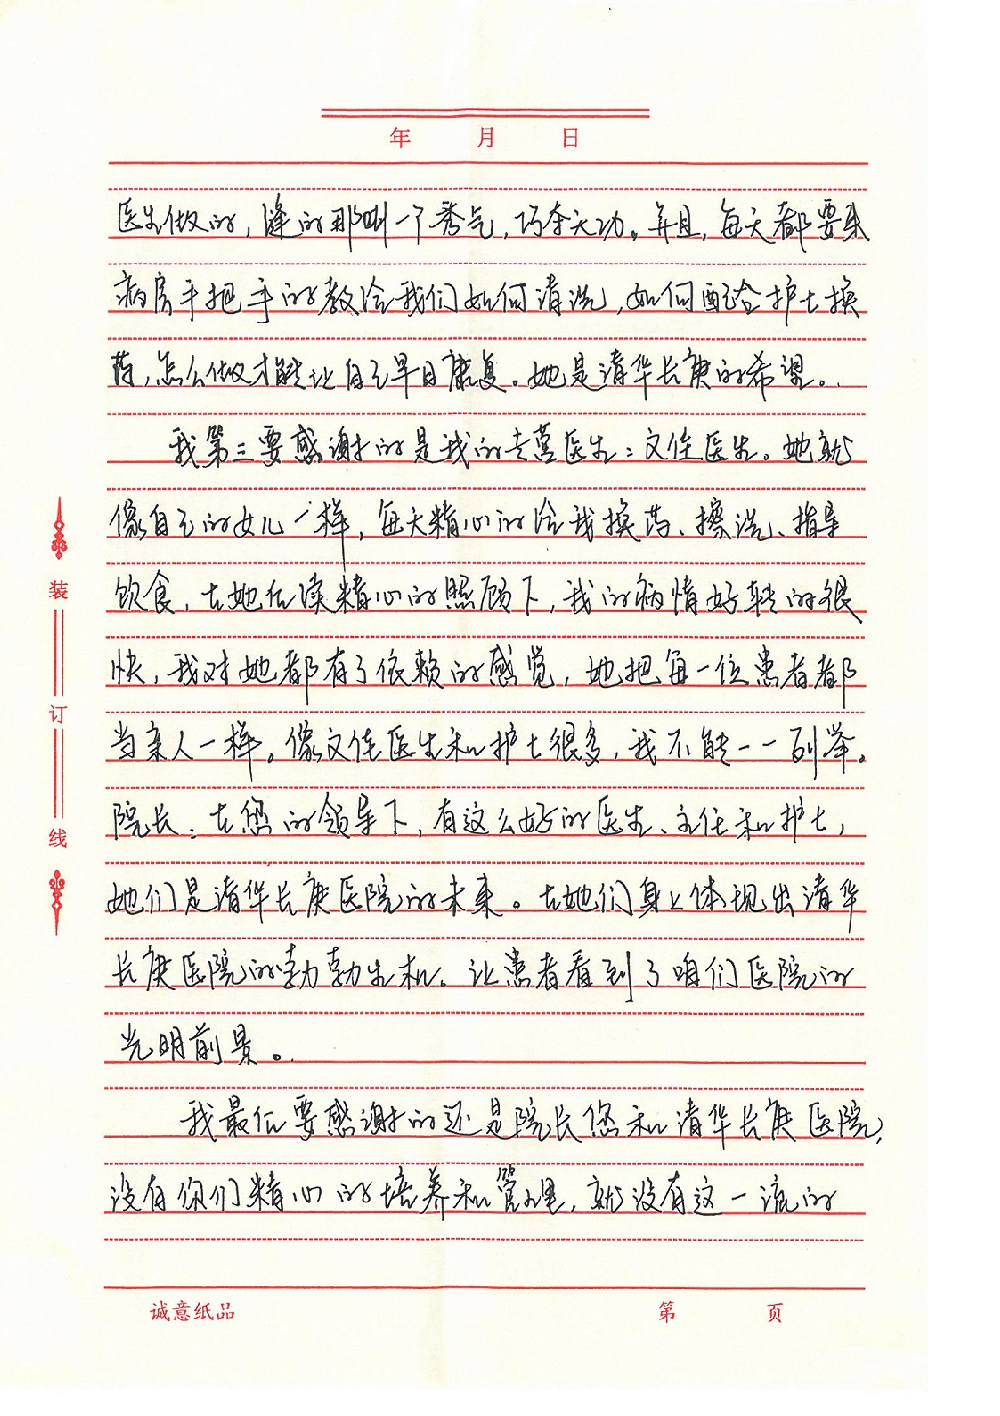 年 月 日
医生做的，缝的那叫一个秀气，巧夺天功。并且，每天都要来
病房手把手的教给我们如何清洗，如何配合护士换
药，怎么做才能让自己早日康复。她是清华长庚的希望。
我第三要感谢的是我的主管医生：文佳医生。她就
像自己的女儿一样，每天精心的给我换药、擦洗、指导
饮食，在她后续精心的照顾下，我的病情好转的很
快，我对她都有了依赖的感觉，她把每一位患者都
当亲人一样。像文佳医生和护士很多，我不能一一列举。
院长：在您的领导下，有这么好的医生、主任和护士，
她们是清华长庚医院的未来。在她们身上体现出清华
长庚医院的勃勃生机。让患者看到了咱们医院的
光明前景。
我最后要感谢的还是院长您和清华长庚医院，
没有你们精心的培养和管理，就没有这一流的
装
订
线
诚意纸品 第 页